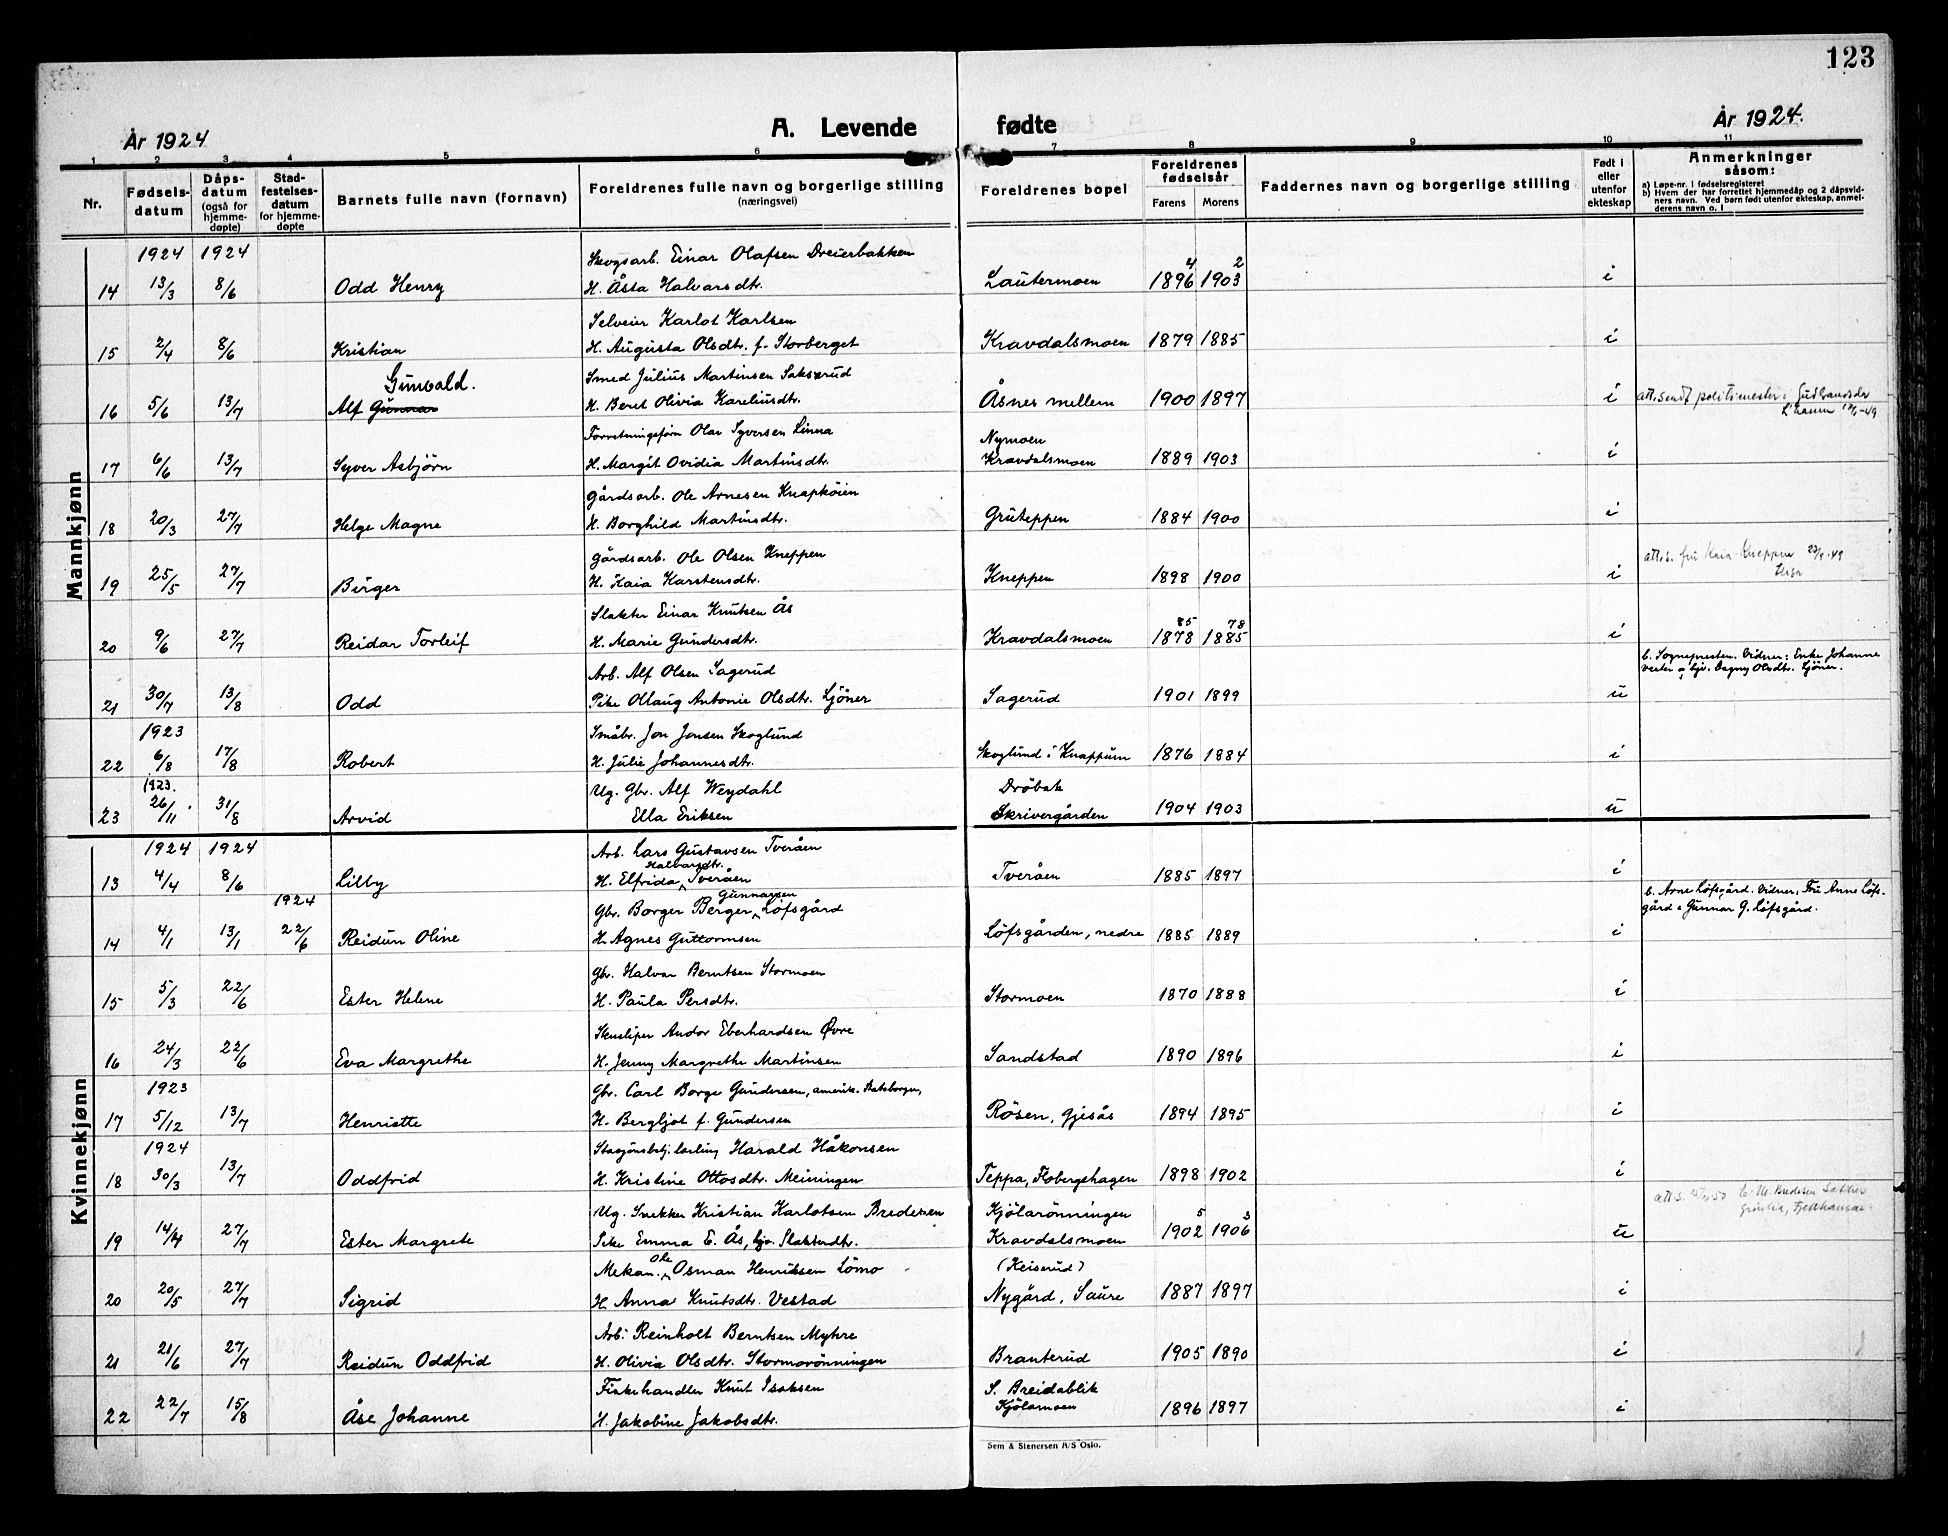 123
År 1924
A. Levende fødte
År 1924.
1 2 3 4 5 6 7 8 9 10 11
Nr.
Fødsels-
datum
Dåps-
datum
(også for
hjemme-
døpte)
Stad-
festelses-
datum
for hjemme-
døpte
Barnets fulle navn (fornavn)
Foreldrenes fulle navn og borgerlige stilling
(næringsvei)
Foreldrenes bopel
Foreldrenes
fødselsår
Farens Morens
Faddernes navn og borgerlige stilling
Født i
eller
utenfor
ekteskap
Anmerkninger
såsom:
a) Løpe-nr. i fødselsregisteret
b) Hvem der har forrettet hjemmedåp og 2 dåpsvid-
ners navn. Ved barn født utenfor ekteskap, anmel-
derens navn o. l
Mannkjønn
1924 1924 Skogsarb. Einar Olafsen Dreierbakken 4 2
14 13/3 8/6 Odd Henry H. Åsta Halvarsdtr. Lautermoen 1896 1903 i
Selveier Karlot Karlsen
15 2/4 8/6 Kristian H. Augusta Olsdtr. f. Storberget Kravdalsmoen 1879 1885 i
Gunvald. Smed Julius Martinsen Sakserud
16 5/6 13/7 Alf Gunnar H. Beret Olivia Kareliusdtr. Åsnes mellem 1900 1897 i att. sendt politimester i
Forretningsförer Olav Syversen Linna Nymoen
17 6/6 13/7 Syver Asbjörn H. Margit Ovidia Martinsdtr. Kravdalsmoen 1889 1903 i
Gårdsarb. Ole Arnesen Knapköien
18 20/3 27/7 Helge Magne H. Borghild Martinsdtr. Gruteppen 1884 1900 i
Gårdsarb. Ole Olsen Kneppen att. s. fru Kaia Kneppen
19 25/5 27/7 Birger H. Kaia Karstensdtr. Kneppen 1898 1900 i
Slakter Einar Knutsen Ås 85 78
20 9/6 27/7 Reidar Torleif H. Marie Gundersdtr. Kravdalsmoen 1878 1885 i
Arb. Alf Olsen Sagerud b. Sognepresten. Vidner: Enke Johanne
21 30/7 13/8 Odd Pike Ollaug Antonie Olsdtr. Ljöner Sagerud 1901 1899 u Dagny Olsdtr. Ljöner.
1923 Småbr. Jon Jonsen Skoglund
22 6/8 17/8 Robert H. Julie Johannesdtr. Skoglund i Knappum 1876 1884 i
1923. Ug. Gbr. Alf Weydahl Dröbak
23 26/11 31/8 Arvid Ella Eriksen Skrivergården 1904 1903 u
Kvinnekjønn
1924 1924 Arb. Lars Gustavsen Tveråen
Halvarsdtr.
13 4/4 8/6 Lilly H. Elfrida Tveråen Tveråen 1885 1897 i
1924 Gunnarsen
Gbr. Borger Berger Löfsgård b. Arne Löfsgård. Vidner: Fru Anne Löfs-
gård & Gunnar G. Löfsgård.
14 4/1 13/1 22/6 Reidun Oline H. Agnes Guttormsen Löfsgården, nedre 1885 1889 i
Gbr. Halvar Berntsen Stormoen
15 5/3 22/6 Ester Helene H. Paula Persdtr. Stormoen 1870 1888 i
Andor Eberhardsen Øvre
16 24/3 22/6 Eva Margrethe H. Jenny Margrethe Martinsen Sandstad 1890 1896 i
1923 Gbr. Carl Borge Gundersen, amerik. Statsborger,
17 5/12 13/7 Henriette H. Bergljot f. Gundersen Rösen, Gjesås 1894 1895 i
1924 Harald Håkonsen
18 30/3 13/7 Oddfrid H. Kristine Ottosdtr. Meiningen Teppa, Flobergshagen 1898 1902 i
Ug. Snekker Kristian Karlotsen Bredesen Kjölarönningen 5 3
19 14/4 27/7 Ester Margrete Pike Emma E. Ås, hjv. Slakterdtr. Kravdalsmoen 1902 1906 u
Ole
Mekan. Osman Henriksen Lömo (Keiserud)
20 20/5 27/7 Sigrid H. Anna Knutsdtr. Vestad Nygård, Saure 1887 1897 i
Arb. Reinholt Berntsen Myhre
21 21/6 27/7 Reidun Oddfrid H. Olivia Olsdtr. Stormorönningen Branterud 1905 1890 i
Fiskehandler Knut Isaksen S. Breidablik
22 22/7 15/8 Åse Johanne H. Jakobine Jakobsdtr. Kjölamoen 1896 1897 i
Sem & Stenersen A/S Oslo.